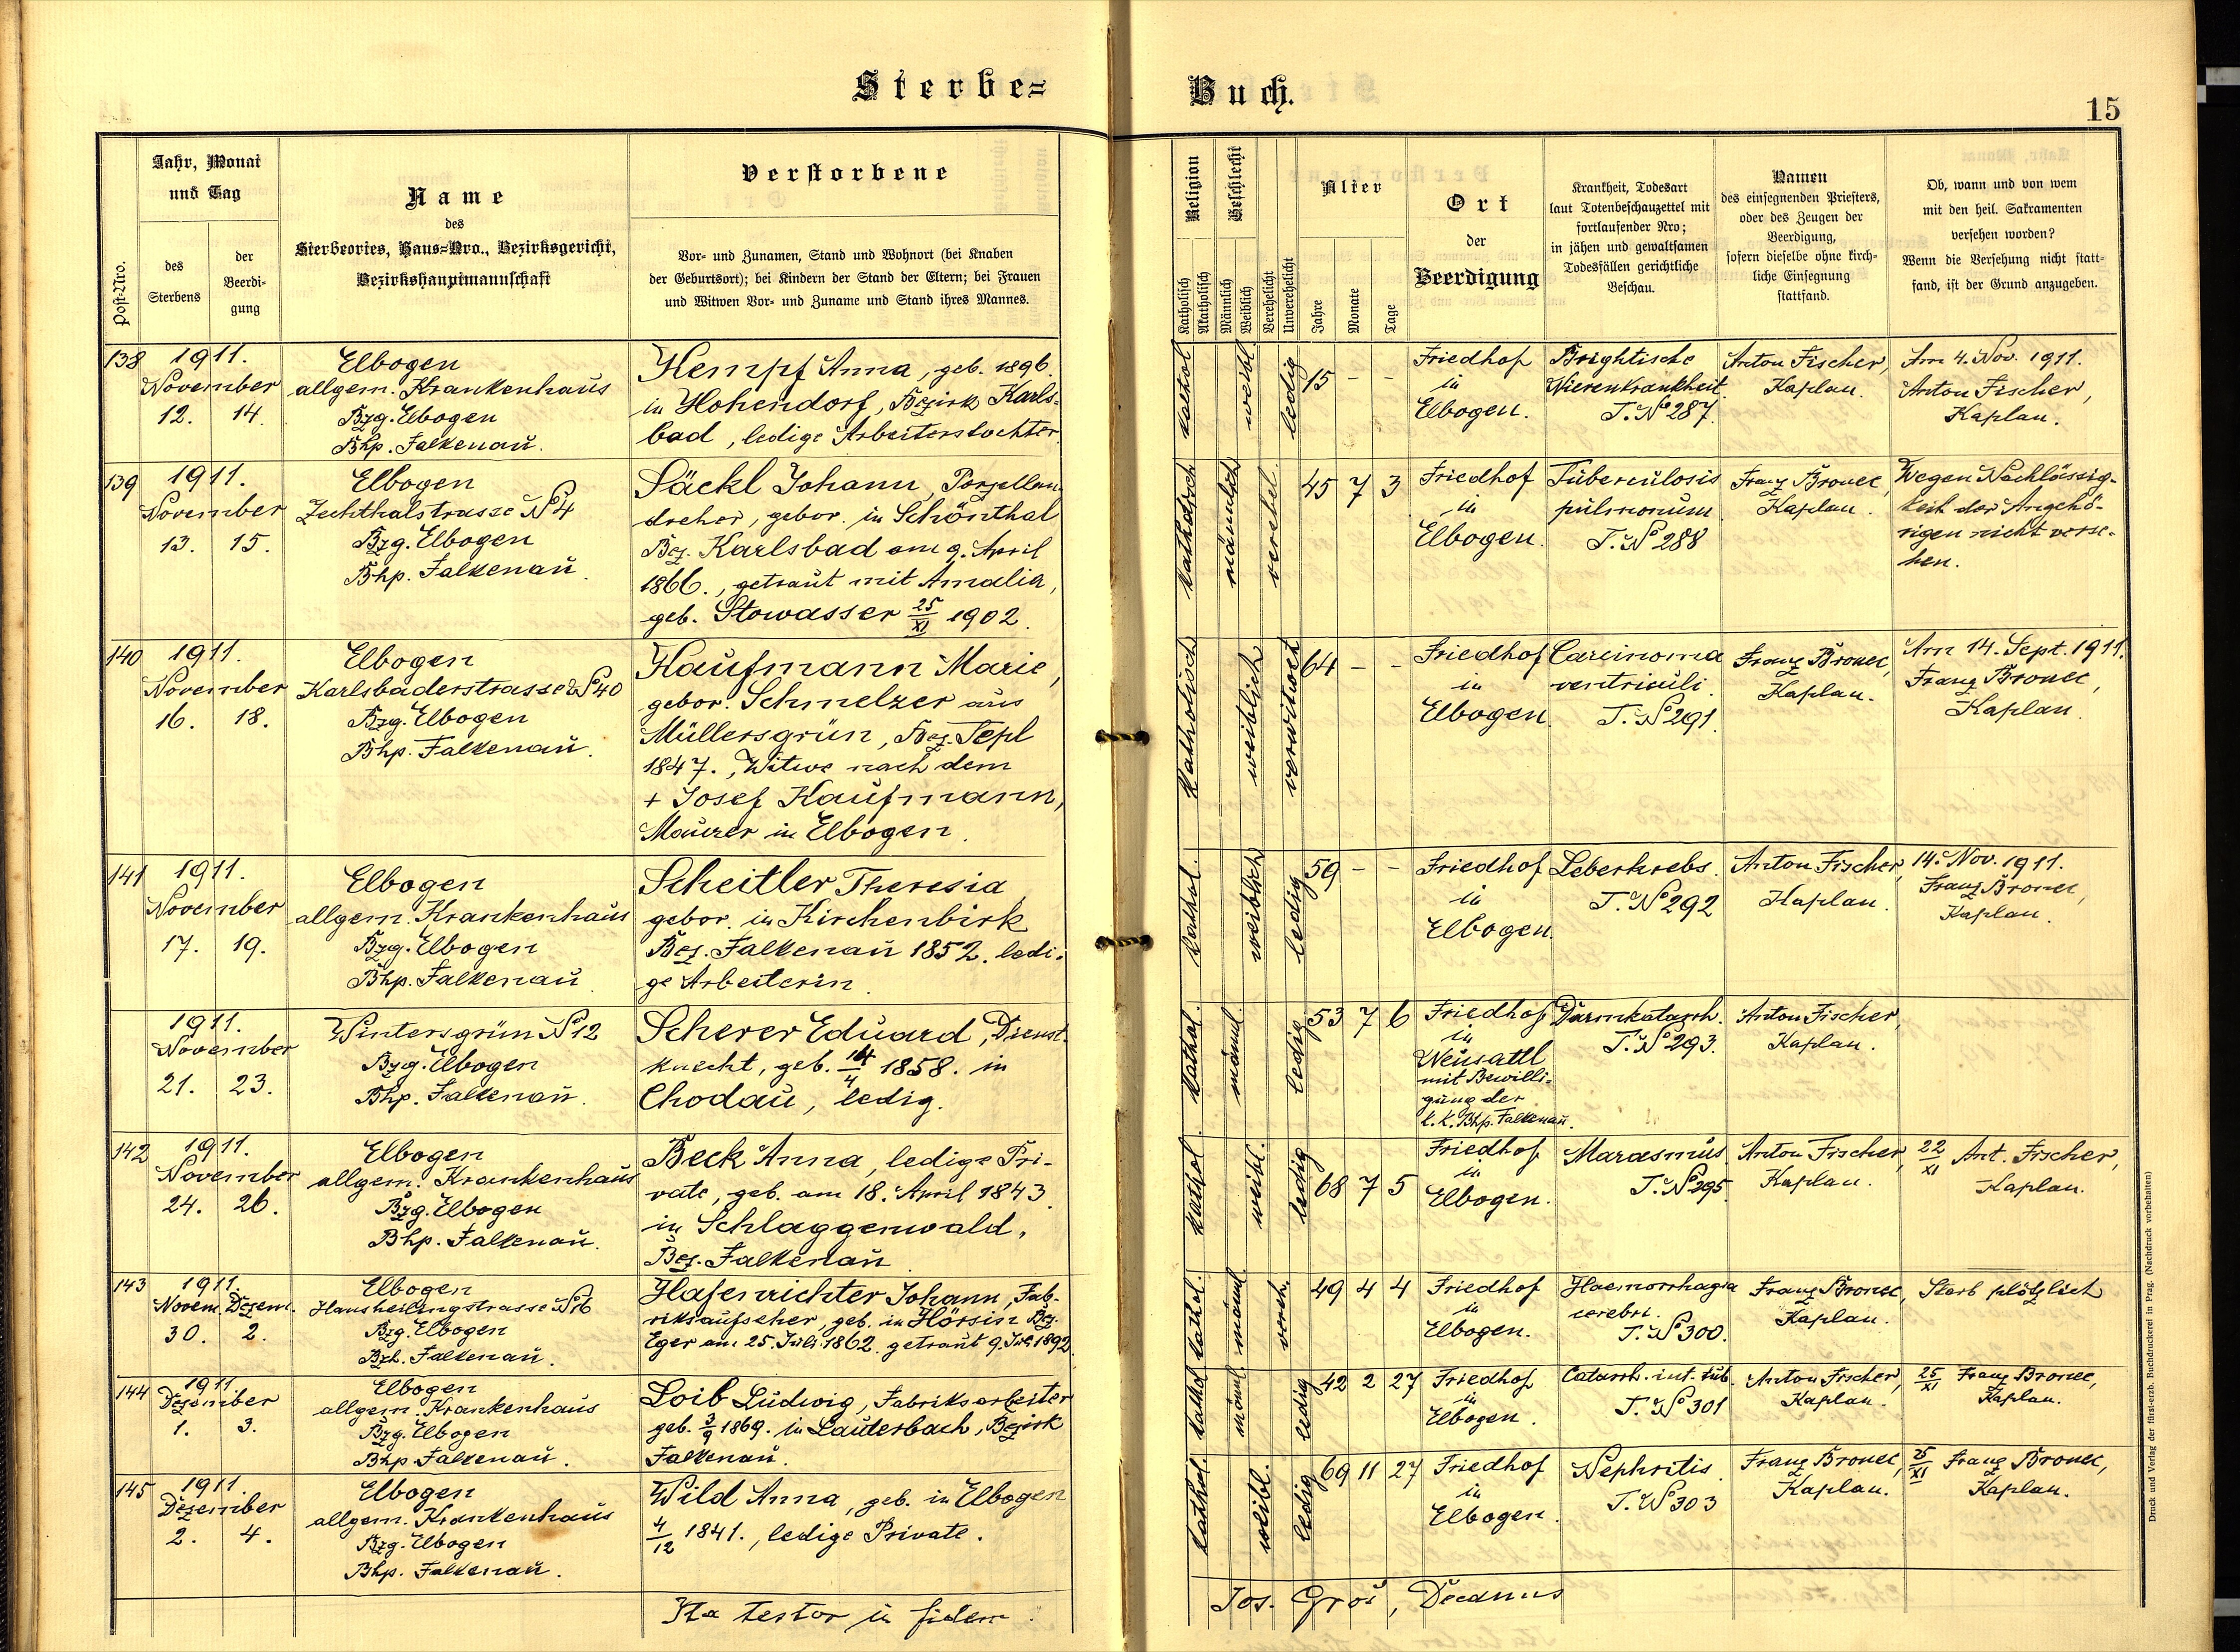 Sterbe=
Buch.
15
Post-Nro.
Jahr, Monat
und Tag
des
Sterbens
der
Beerdi-
gung
Name
des
Sterbeortes, Haus=Nro., Bezirksgericht,
Bezirkshauptmannschaft
Verstorbene
Vor= und Zunamen, Stand und Wohnort (bei Knaben
der Geburtsort); bei Kindern der Stand der Eltern; bei Frauen
und Witwen Vor= und Zuname und Stand ihres Mannes.
Religion
Katholisch
Akatholisch
Geschlecht
Männlich
Weiblich
Verehelicht
Unverehelicht
Alter
Jahre
Monate
Tage
Ort
der
Beerdigung
Krankheit, Todesart
laut Totenbeschauzettel mit
fortlaufender Nro;
in jähen und gewaltsamen
Todesfällen gerichtliche
Beschau.
Namen
des einsegnenden Priesters,
oder des Zeugen der
Beerdigung,
sofern dieselbe ohne kirch-
liche Einsegnung
stattfand.
Ob, wann und von wem
mit den heil. Sakramenten
versehen worden?
Wenn die Versehung nicht statt-
fand, ist der Grund anzugeben.
138
1911.
November
12. 14.
Elbogen
allgem. Krankenhaus
Bzg. Elbogen
Bhp. Falkenau.
Kempf Anna, geb. 1896.
in Hohendorf, Bezirk Karls=
bad, ledige Arbeiterstochter
kathol.
weibl.
ledig
15 - -
Friedhof
in
Elbogen.
Brightische
Nierenkrankheit.
T. № 287.
Anton Fischer,
Kaplan.
Am 4. Nov. 1911.
Anton Fischer,
Kaplan.
139
1911.
November
13. 15.
Elbogen
Zechthalstrasse № 4
Bzg. Elbogen
Bhp. Falkenau.
Säckl Johann, Porzellan
dreher, gebor. in Schönthal
Bez. Karlsbad am 9. April
1866., getraut mit Amalia,
geb. Stowasser 25/XI 1902.
katholisch
männlich
verehel.
45 7 3
Friedhof
in
Elbogen.
Tuberculosis
pulmonum
T. № 288
Franz Bronec,
Kaplan.
Wegen Nachlässig-
keit der Angehö-
rigen nicht verse-
hen.
140
1911.
November
16. 18.
Elbogen
Karlsbaderstrasse № 40
Bzg. Elbogen
Bhp. Falkenau.
Kaufmann Marie,
gebor. Schmelzer aus
Müllersgrün, Bez. Tepl
1847., Witwe nach dem
+ Josef Kaufmann,
Maurer in Elbogen.
Katholisch
weiblich
verwitwet
64 - -
Friedhof
in
Elbogen.
Carcinoma
ventriculi.
T. № 291.
Franz Bronec,
Kaplan.
Am 14. Sept. 1911.
Franz Bronec,
Kaplan.
141
1911.
November
17. 19.
Elbogen
allgem. Krankenhaus
Bzg. Elbogen
Bhp. Falkenau.
Scheitler Theresia,
gebor. in Kirchenbirk
Bez. Falkenau 1852. ledi-
ge Arbeiterin.
Kathol.
weiblich
ledig
59 - -
Friedhof
in
Elbogen.
Leberkrebs.
T. № 292
Anton Fischer,
Kaplan.
14. Nov. 1911.
Franz Bronec,
Kaplan.
1911.
November
21. 23.
Wintersgrün № 12
Bzg. Elbogen
Bhp. Falkenau.
Scherer Eduard, Dienst-
knecht, geb. 14/4 1858. in
Chodau, ledig.
kathol.
männl.
ledig
53 7 6
Friedhof
in
Neusattl
mit Bewilli-
gung der
k. k. Bhp. Falkenau.
Darmkatarrh.
T. № 293.
Anton Fischer,
Kaplan.
142
1911.
November
24. 26.
Elbogen
allgem. Krankenhaus
Bzg. Elbogen
Bhp. Falkenau.
Beck Anna, ledige Pri-
vate, geb. am 18. April 1843.
in Schlaggenwald,
Bez. Falkenau.
kathol.
weibl.
ledig
68 7 5
Friedhof
in
Elbogen.
Marasmus.
T. № 295.
Anton Fischer,
Kaplan.
22/XI Ant. Fischer,
Kaplan.
143
1911.
Novem. Dezem.
30. 2.
Elbogen
Hansheilingstrasse № 16
Bzg. Elbogen
Bzh. Falkenau.
Hafenrichter Johann, Fab-
riksaufseher, geb. in Hörsin Bez.
Eger am 25. Juli 1862. getraut 9. Juli 1892.
kathol.
männl.
vereh.
49 4 4
Friedhof
in
Elbogen.
Haemorrhagia
cerebri.
T. № 300.
Franz Bronec,
Kaplan.
Starb plötzlich
144
1911
Dezember
1. 3.
Elbogen
allgem. Krankenhaus
Bzg. Elbogen
Bhp Falkenau.
Loib Ludwig, Fabriksarbeiter
geb. 3/9 1869. in Lauterbach, Bezirk
Falkenau.
kathol.
männl.
ledig
42 2 27
Friedhof
in
Elbogen.
Catarrh. int. tub.
T. № 301
Anton Fischer,
Kaplan.
25/XI Franz Bronec,
Kaplan.
145
1911.
Dezember
2. 4.
Elbogen
allgem. Krankenhaus
Bzg. Elbogen
Bhp. Falkenau.
Wild Anna, geb. in Elbogen
4/12 1841., ledige Private.
kathol.
weibl.
ledig
69 11 27
Friedhof
in
Elbogen.
Nephritis.
T. № 303
Franz Bronec,
Kaplan.
25/XI Franz Bronec,
Kaplan.
Ita testor in fidem.
Jos. Groš, Decanus
Druck und Verlag der fürst-erzb. Buchdruckerei in Prag. (Nachdruck vorbehalten)